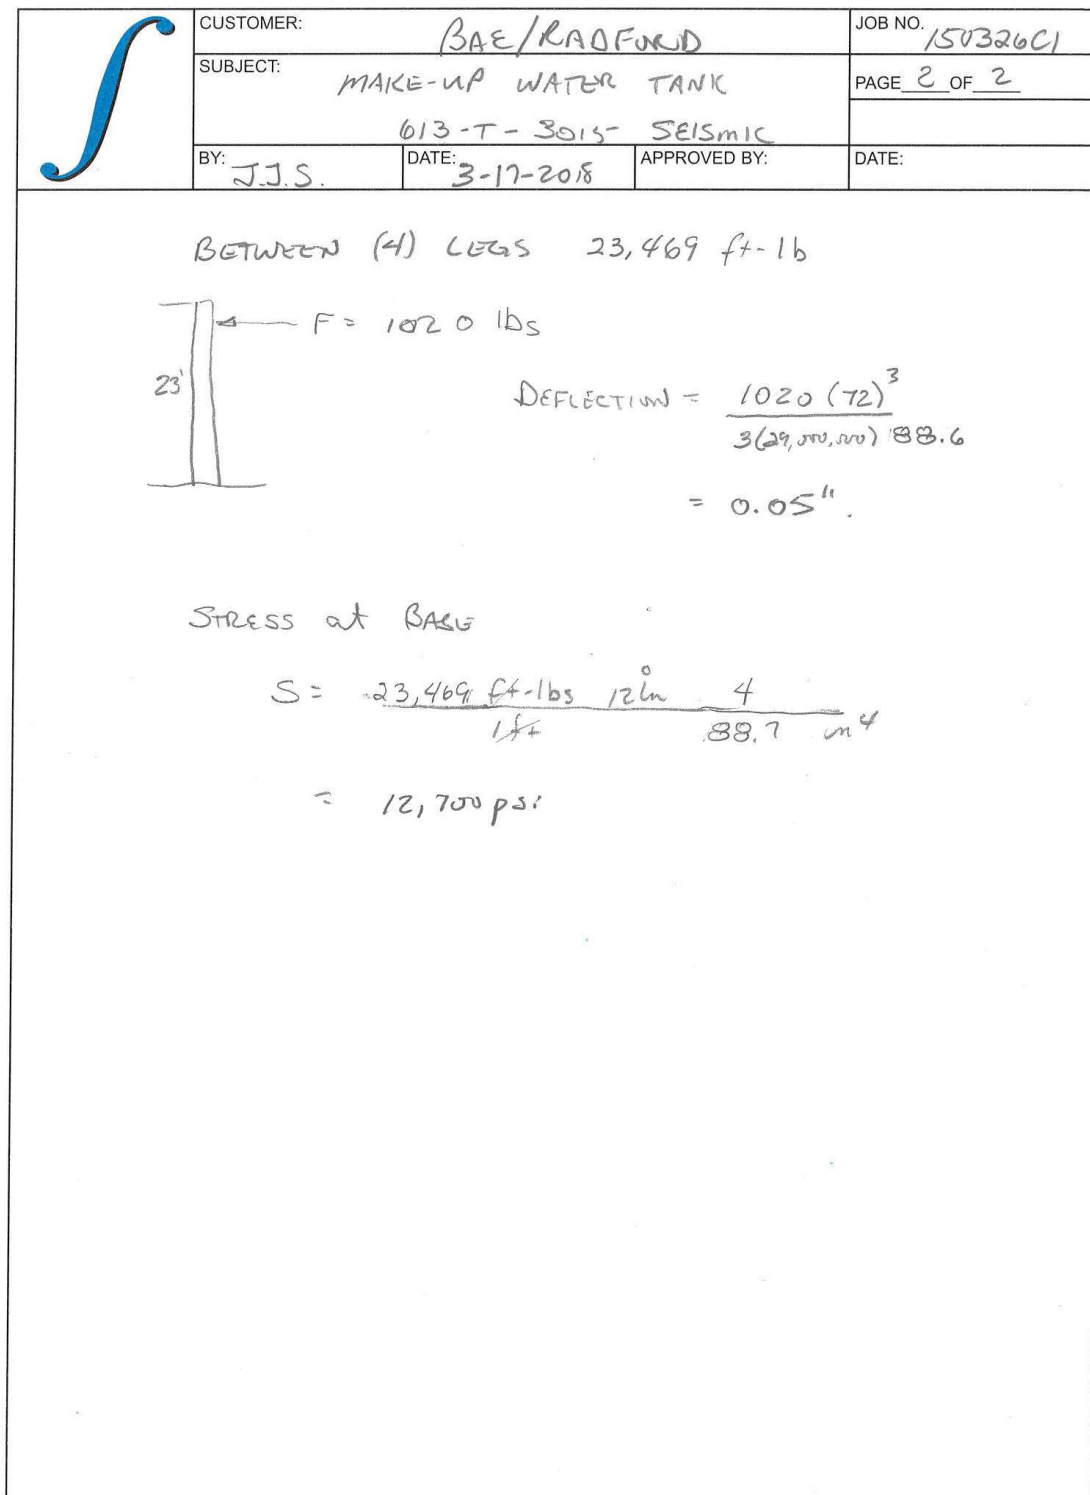 CUSTOMER: BAE/RADFORD
JOB NO. 150326C1
SUBJECT: MAKE-UP WATER TANK
PAGE 2 OF 2
613-T-3015- SEISMIC
BY: J.J.S.
DATE: 3-17-2018
APPROVED BY:
DATE:
BETWEEN (4) LEGS 23,469 ft-lb
F = 1020 lbs
23'
DEFLECTION = 1020 (72)³
3(29,000,000) 88.6
= 0.05".
STRESS at BASE
S = 23,469 ft-lbs 12 in 4
1 ft 88.7 in⁴
= 12,700 psi